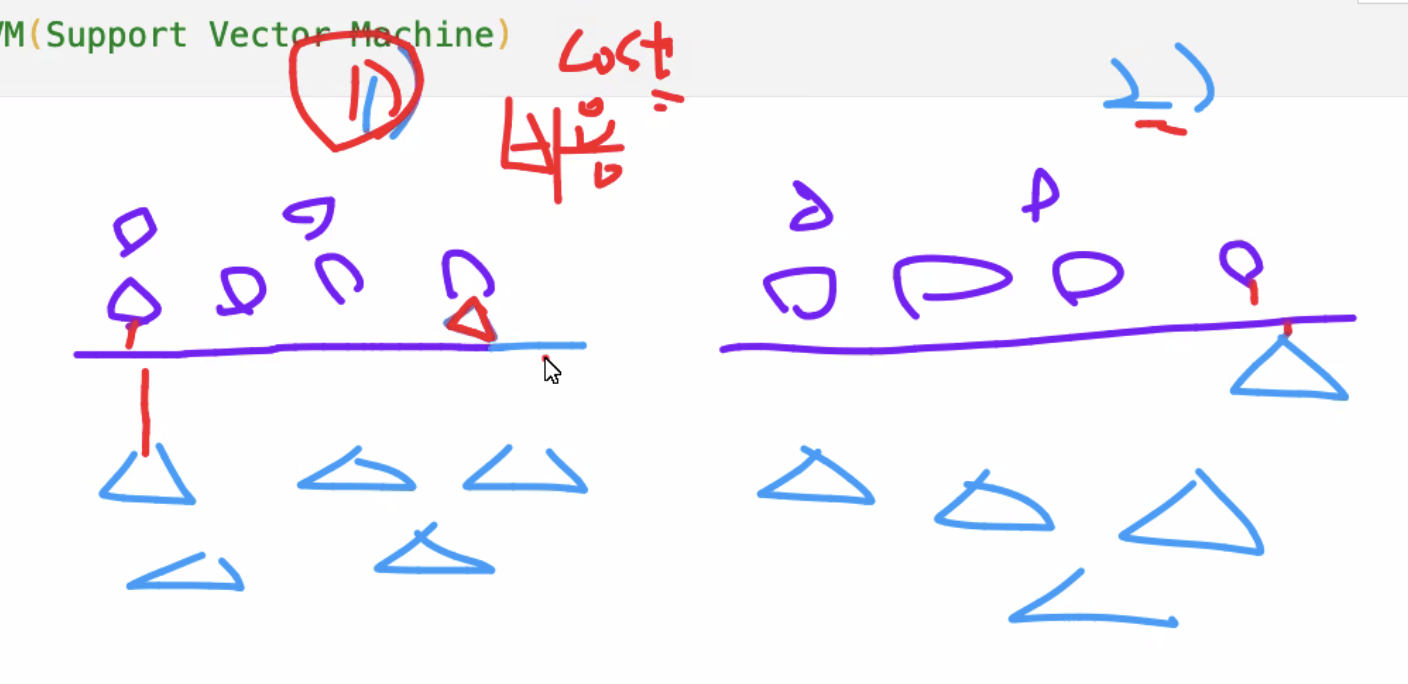 VM(Support Vector Machine)
1)
cost
2)